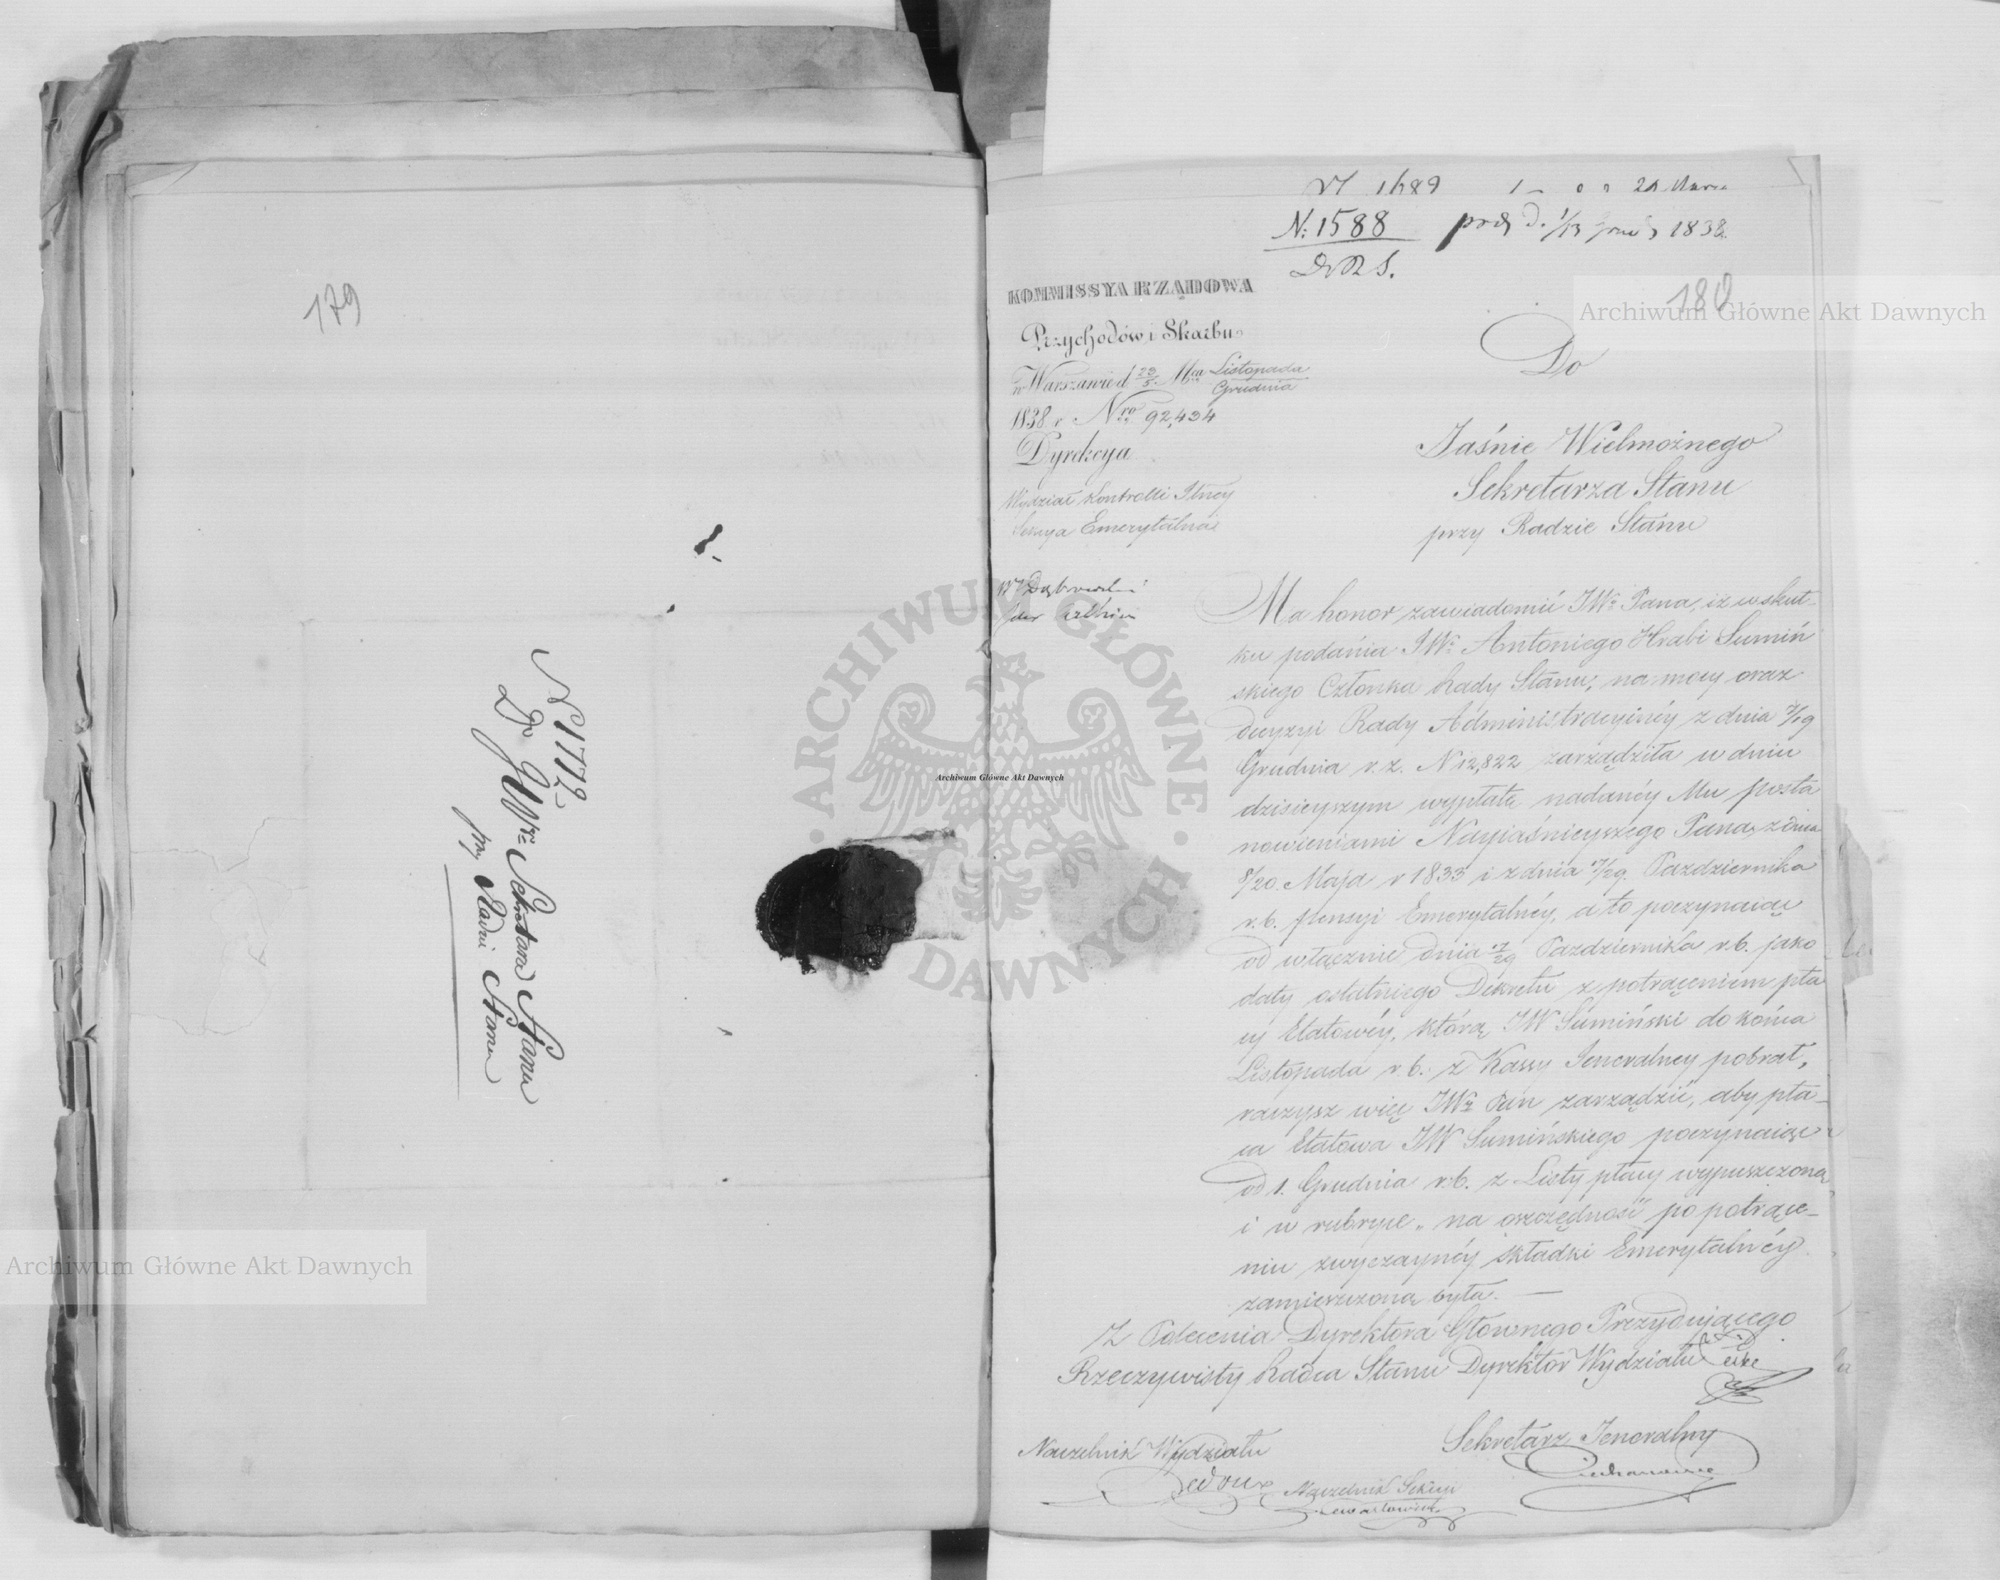 179
N 1779
Do JWo Sekretarza Stanu
przy Radzie Stanu
N 1689
N: 1588
DRS.
prdz d. 1/13 1838
180
KOMMISSYA RZĄDOWA
Przychodów i Skarbu
w Warszawie d 23/5 Mca Listopada/Grudnia
1838 r. Nro 92,434
Dyrekcya
Wydział Kontrolli
Sekcya Emerytalna
W Dąbrowski
Do
Jaśnie Wielmożnego
Sekretarza Stanu
przy Radzie Stanu
Ma honor zawiadomić JWo Pana, iż w skut-
ku podania JWo Antoniego Hrabi Sumiń
skiego Członka Rady Stanu, na mocy oraz
decyzyi Rady Administracyinéy z dnia 7/19
Grudnia r. z. N 12,822 zarządziła w dniu
dzisieyszym wypłatę nadanéy Mu posta
nowieniami Nayiaśnieyszego Pana z dnia
8/20. Maja r 1833 i z dnia 17/29. Października
r. b. pensyi Emerytalnéy, a to poczynaiąc
od włącznie dnia 17/29 Października r. b. jako
daty ostatniego Dekretu z potrąceniem pła
cy Etatowéy, którą JW Sumiński do końca
Listopada r. b. z Kassy Jeneralney pobrał,
raczysz więc JWo Pan zarządzić, aby pła-
ca Etatowa JW Sumińskiego poczynaiąc
od 1. Grudnia r. b. z Listy płacy wypuszczoną
i w rubryce „na oszczędność" po potrące-
niu zwyczaynéy składki Emerytalnéy
zamieszczoną była. —
Z Polecenia Dyrektora Głównego Prezydującego
Rzeczywisty Radca Stanu Dyrektor Wydziału
Naczelnik Wydziału
Sekretarz Jeneralny
Naczelnik Sekcyi
Archiwum Główne Akt Dawnych
Archiwum Główne Akt Dawnych
Archiwum Główne Akt Dawnych
ARCHIWUM GŁÓWNE AKT DAWNYCH